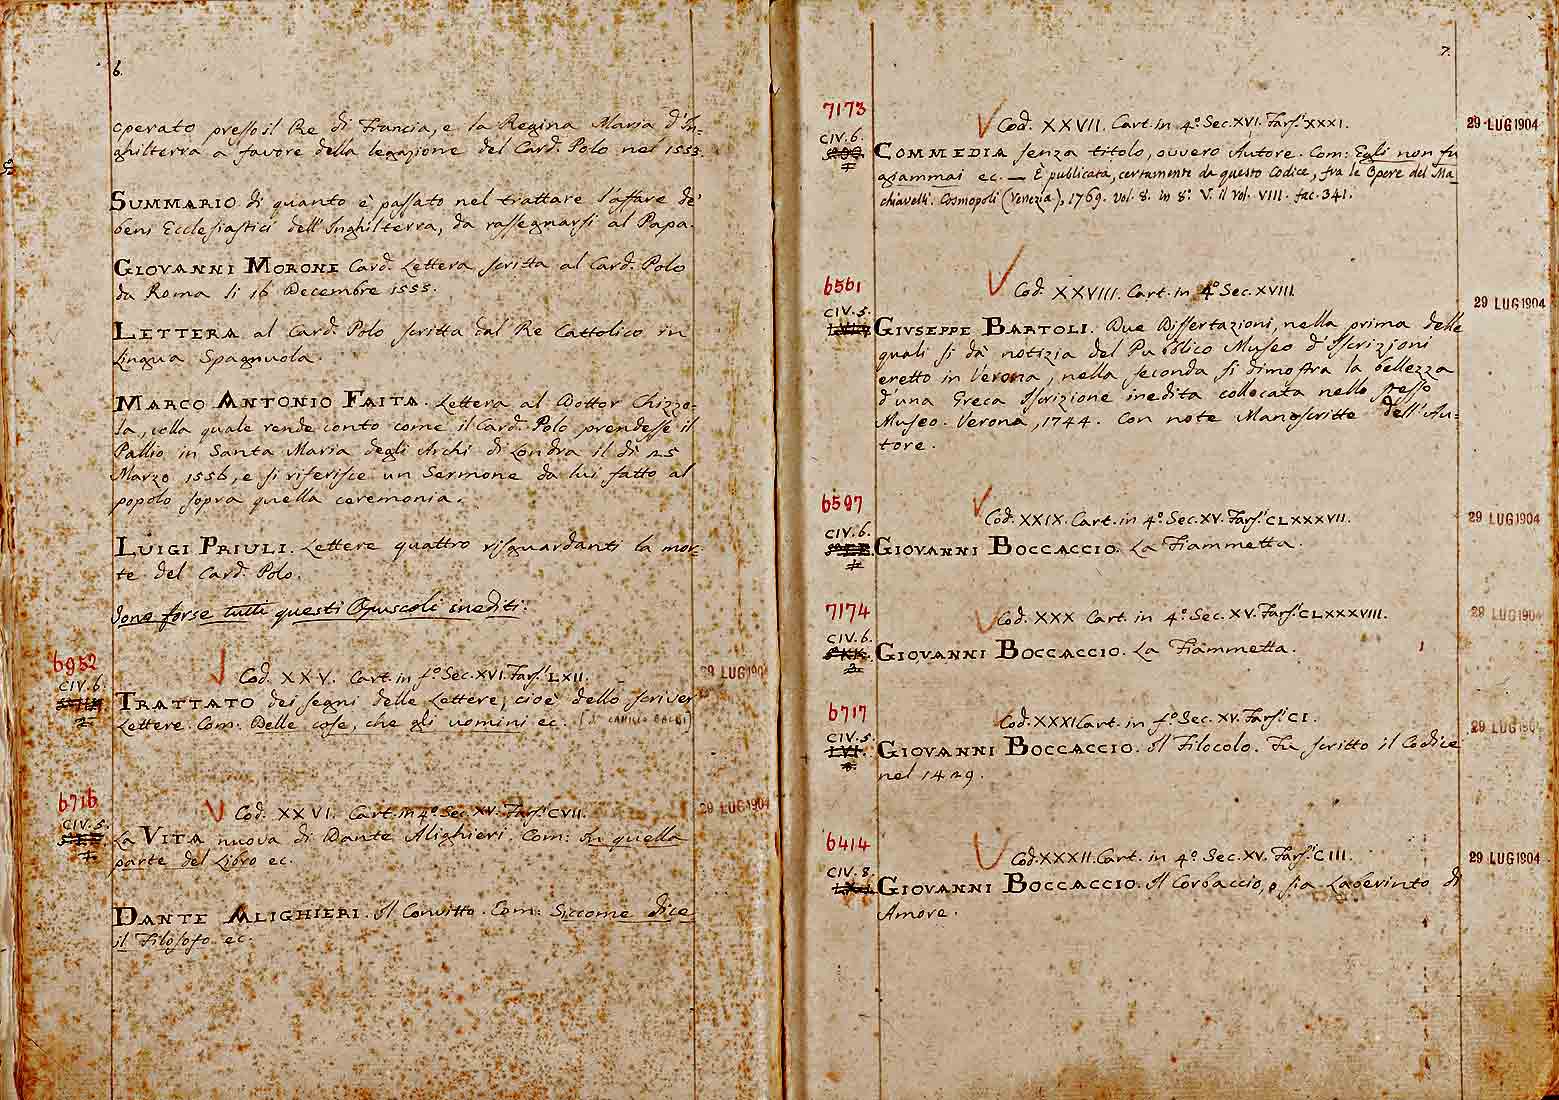 6.
operato presso il Re di Francia, e la Regina Maria d'In=
ghilterra a favore della legazione del Card. Polo nel 1553.
SUMMARIO di quanto è passato nel trattare l'affare de'
beni Ecclesiastici dell'Inghilterra, da rassegnarsi al Papa.
GIOVANNI MORONE Card. Lettera scritta al Card. Polo
da Roma li 16 Decembre 1555.
LETTERA al Card. Polo scritta dal Re Cattolico in
Lingua Spagnuola.
MARCO ANTONIO FAITA. Lettera al Dottor Chizzo=
la, colla quale rende conto come il Card. Polo prendesse il
Pallio in Santa Maria degli Archi di Londra il dì 25
Marzo 1556, e si riferisce un Sermone da lui fatto al
popolo sopra quella ceremonia.
LUIGI PRIULI. Lettere quattro risguardanti la mor=
te del Card. Polo.
Sono forse tutti questi Opuscoli inediti.
6952
CIV. 6.
Cod. XXV. Cart. in fº Sec. XVI. Fars. LXII.
29 LUG 1904
TRATTATO dei segni delle Lettere, cioè dello scriver
Lettere. Com: Delle cose, che gli uomini ec. [di CAMILLO BALDI]
6716
CIV. 5.
Cod. XXVI. Cart. in 4º Sec. XV. Fars. CVII.
29 LUG 1904
La VITA nuova di Dante Alighieri. Com: In quella
parte del Libro ec.
DANTE ALIGHIERI. Il Convitto. Com: Siccome dice
il Filosofo ec.
7.
7173
CIV. 6.
Cod. XXVII. Cart. in 4º Sec. XVI. Fars. XXXI.
29 LUG 1904
COMMEDIA senza titolo, ovvero Autore. Com: Egli non fu
giammai ec. — È publicata, certamente da questo Codice, fra le Opere del Ma=
chiavelli. Cosmopoli (Venezia), 1769. vol. 8. in 8º. V. il vol. VIII. fac. 341.
6561
CIV. 5.
Cod. XXVIII. Cart. in 4º Sec. XVIII.
29 LUG 1904
GIUSEPPE BARTOLI. Due Dissertazioni, nella prima delle
quali si dà notizia del Pubblico Museo d'Iscrizioni
eretto in Verona, nella seconda si dimostra la bellezza
d'una Greca Iscrizione inedita collocata nello stesso
Museo. Verona, 1744. Con note Manoscritte dell'Au=
tore.
6597
CIV. 6.
Cod. XXIX. Cart. in 4º Sec. XV. Fars. CLXXXVII.
29 LUG 1904
GIOVANNI BOCCACCIO. La Fiammetta.
7174
CIV. 6.
Cod. XXX Cart. in 4º Sec. XV. Fars. CLXXXVIII.
29 LUG 1904
GIOVANNI BOCCACCIO. La Fiammetta.
6717
CIV. 5.
Cod. XXXI Cart. in fº Sec. XV. Fars. CI.
29 LUG 1904
GIOVANNI BOCCACCIO. Il Filocolo. Fu scritto il Codice
nel 1429.
6414
CIV. 8.
Cod. XXXII. Cart. in 4º Sec. XV. Fars. CIII.
29 LUG 1904
GIOVANNI BOCCACCIO. Il Corbaccio, o sia Laberinto di
Amore.